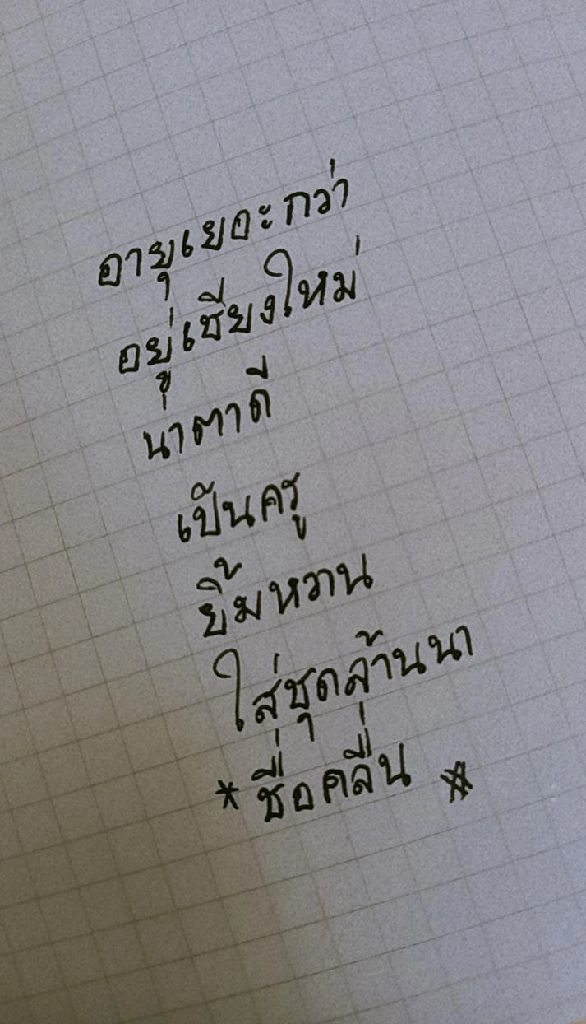 อายุเยอะกว่า
อยู่เชียงใหม่
น่าตาดี
เป็นครู
ยิ้มหวาน
ใส่ชุดล้านนา
*ชื่อคลื่น *